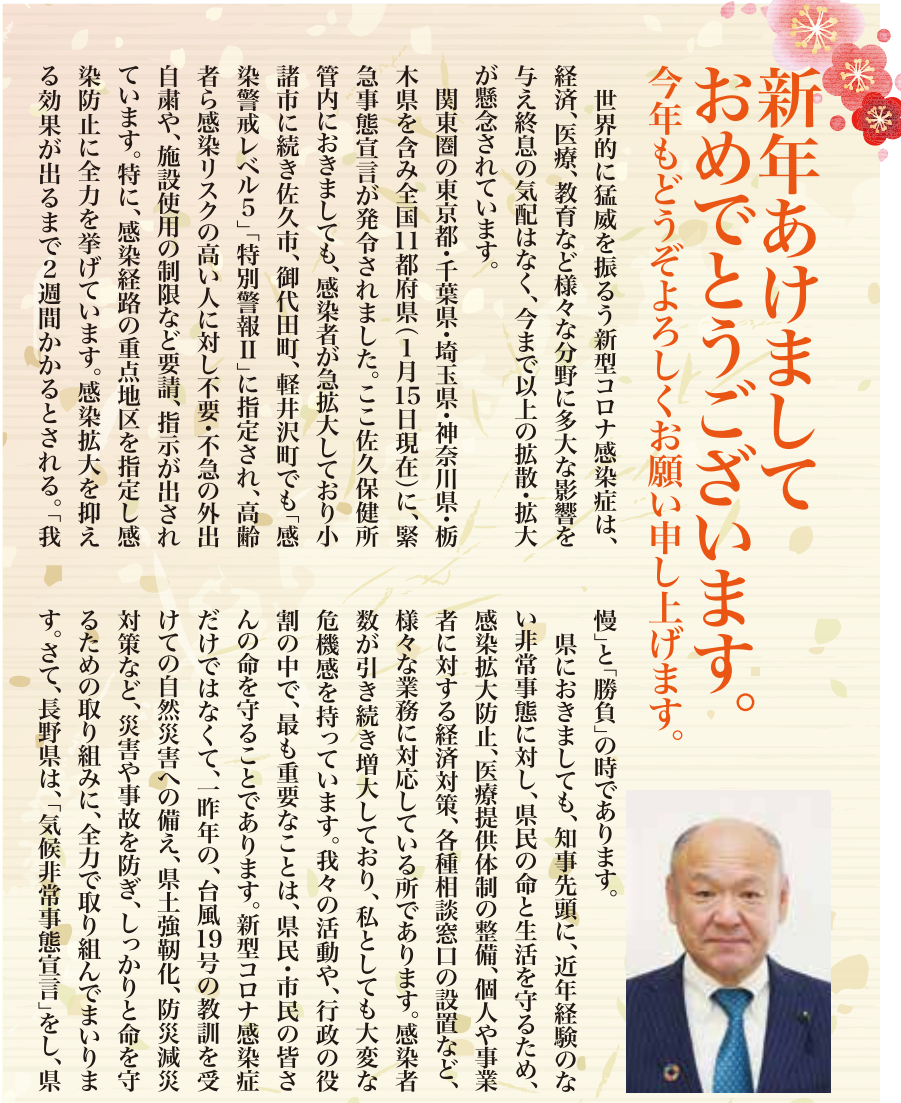 新年あけまして
おめでとうございます。
今年もどうぞよろしくお願い申し上げます。
世界的に猛威を振るう新型コロナ感染症は、
経済、医療、教育など様々な分野に多大な影響を
与え終息の気配はなく、今まで以上の拡散・拡大
が懸念されています。
関東圏の東京都・千葉県・埼玉県・神奈川県・栃
木県を含み全国11都府県(1月15日現在)に、緊
急事態宣言が発令されました。ここ佐久保健所
管内におきましても、感染者が急拡大しており小
諸市に続き佐久市、御代田町、軽井沢町でも「感
染警戒レベル5」「特別警報Ⅱ」に指定され、高齢
者ら感染リスクの高い人に対し不要・不急の外出
自粛や、施設使用の制限など要請、指示が出され
ています。特に、感染経路の重点地区を指定し感
染防止に全力を挙げています。感染拡大を抑え
る効果が出るまで2週間かかるとされる。「我
慢」と「勝負」の時であります。
県におきましても、知事先頭に、近年経験のな
い非常事態に対し、県民の命と生活を守るため、
感染拡大防止、医療提供体制の整備、個人や事業
者に対する経済対策、各種相談窓口の設置など、
様々な業務に対応している所であります。感染者
数が引き続き増大しており、私としても大変な
危機感を持っています。我々の活動や、行政の役
割の中で、最も重要なことは、県民・市民の皆さ
んの命を守ることであります。新型コロナ感染症
だけではなくて、一昨年の、台風19号の教訓を受
けての自然災害への備え、県土強靭化、防災減災
対策など、災害や事故を防ぎ、しっかりと命を守
るための取り組みに、全力で取り組んでまいりま
す。さて、長野県は、「気候非常事態宣言」をし、県